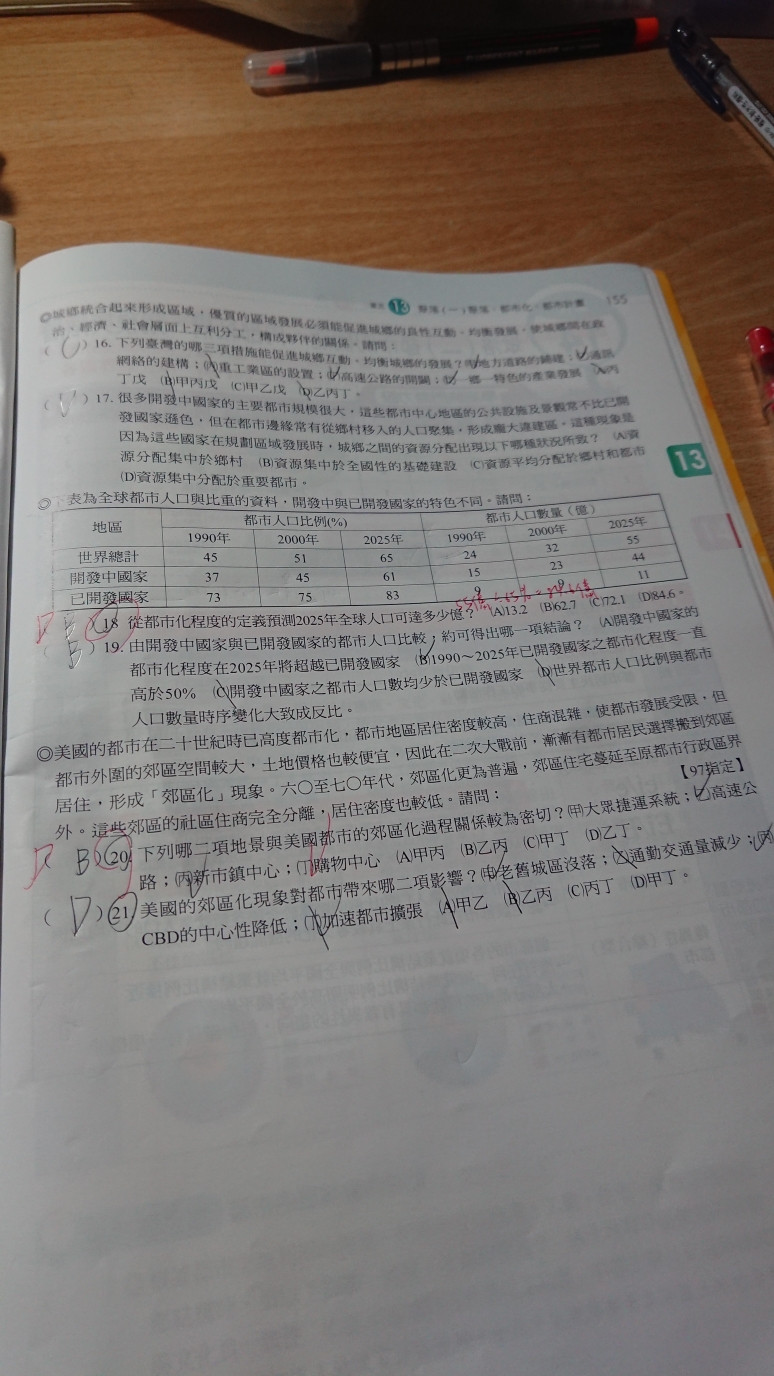 單元 13 聚落(一)聚落、都市化、都市計畫 155
◎城鄉統合起來形成區域，優質的區域發展必須能促進城鄉的良性互動、均衡發展，使城鄉間在政
治、經濟、社會層面上互利分工，構成夥伴的關係。請問：
( C ) 16. 下列臺灣的哪三項措施能促進城鄉互動、均衡城鄉的發展？㈙地方道路的鋪建；㈚通訊
網絡的建構；㈛重工業區的設置；㈜高速公路的開闢；㈝一鄉一特色的產業發展 (A)丙
丁戊 (B)甲丙戊 (C)甲乙戊 (D)乙丙丁。
( D ) 17. 很多開發中國家的主要都市規模很大，這些都市中心地區的公共設施及景觀常不比已開
發國家遜色，但在都市邊緣常有從鄉村移入的人口聚集，形成龐大違建區。這種現象是
因為這些國家在規劃區域發展時，城鄉之間的資源分配出現以下哪種狀況所致？ (A)資
源分配集中於鄉村 (B)資源集中於全國性的基礎建設 (C)資源平均分配於鄉村和都市
(D)資源集中分配於重要都市。
13
◎下表為全球都市人口與比重的資料，開發中與已開發國家的特色不同。請問：
地區 都市人口比例(%) 都市人口數量（億）
1990年 2000年 2025年 1990年 2000年 2025年
世界總計 45 51 65 24 32 55
開發中國家 37 45 61 15 23 44
已開發國家 73 75 83 9 9 11
D B 18 從都市化程度的定義預測2025年全球人口可達多少億？ (A)13.2 (B)62.7 (C)72.1 (D)84.6。
( B ) 19. 由開發中國家與已開發國家的都市人口比較，約可得出哪一項結論？ (A)開發中國家的
都市化程度在2025年將超越已開發國家 (B)1990～2025年已開發國家之都市化程度一直
高於50% (C)開發中國家之都市人口數均少於已開發國家 (D)世界都市人口比例與都市
人口數量時序變化大致成反比。
◎美國的都市在二十世紀時已高度都市化，都市地區居住密度較高，住商混雜，使都市發展受限，但
都市外圍的郊區空間較大，土地價格也較便宜，因此在二次大戰前，漸漸有都市居民選擇搬到郊區
居住，形成「郊區化」現象。六〇至七〇年代，郊區化更為普遍，郊區住宅蔓延至原都市行政區界
外。這些郊區的社區住商完全分離，居住密度也較低。請問： 【97指定】
B ) 20. 下列哪二項地景與美國都市的郊區化過程關係較為密切？㈙大眾捷運系統；㈚高速公
路；㈛新市鎮中心；㈜購物中心 (A)甲丙 (B)乙丙 (C)甲丁 (D)乙丁。
( D ) 21. 美國的郊區化現象對都市帶來哪二項影響？㈙老舊城區沒落；㈚通勤交通量減少；㈛
CBD的中心性降低；㈜加速都市擴張 (A)甲乙 (B)乙丙 (C)丙丁 (D)甲丁。